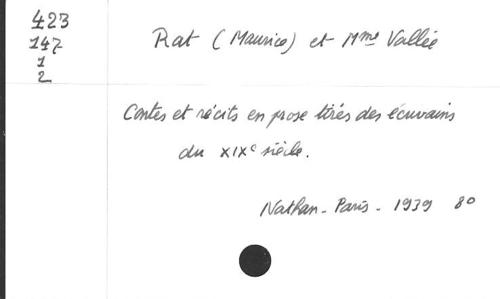 423
147
1
2
Rat (Maurice) et Mme Vallée
Contes et récits en prose tirés des écrivains
du XIXe siècle.
Nathan - Paris - 1939 80